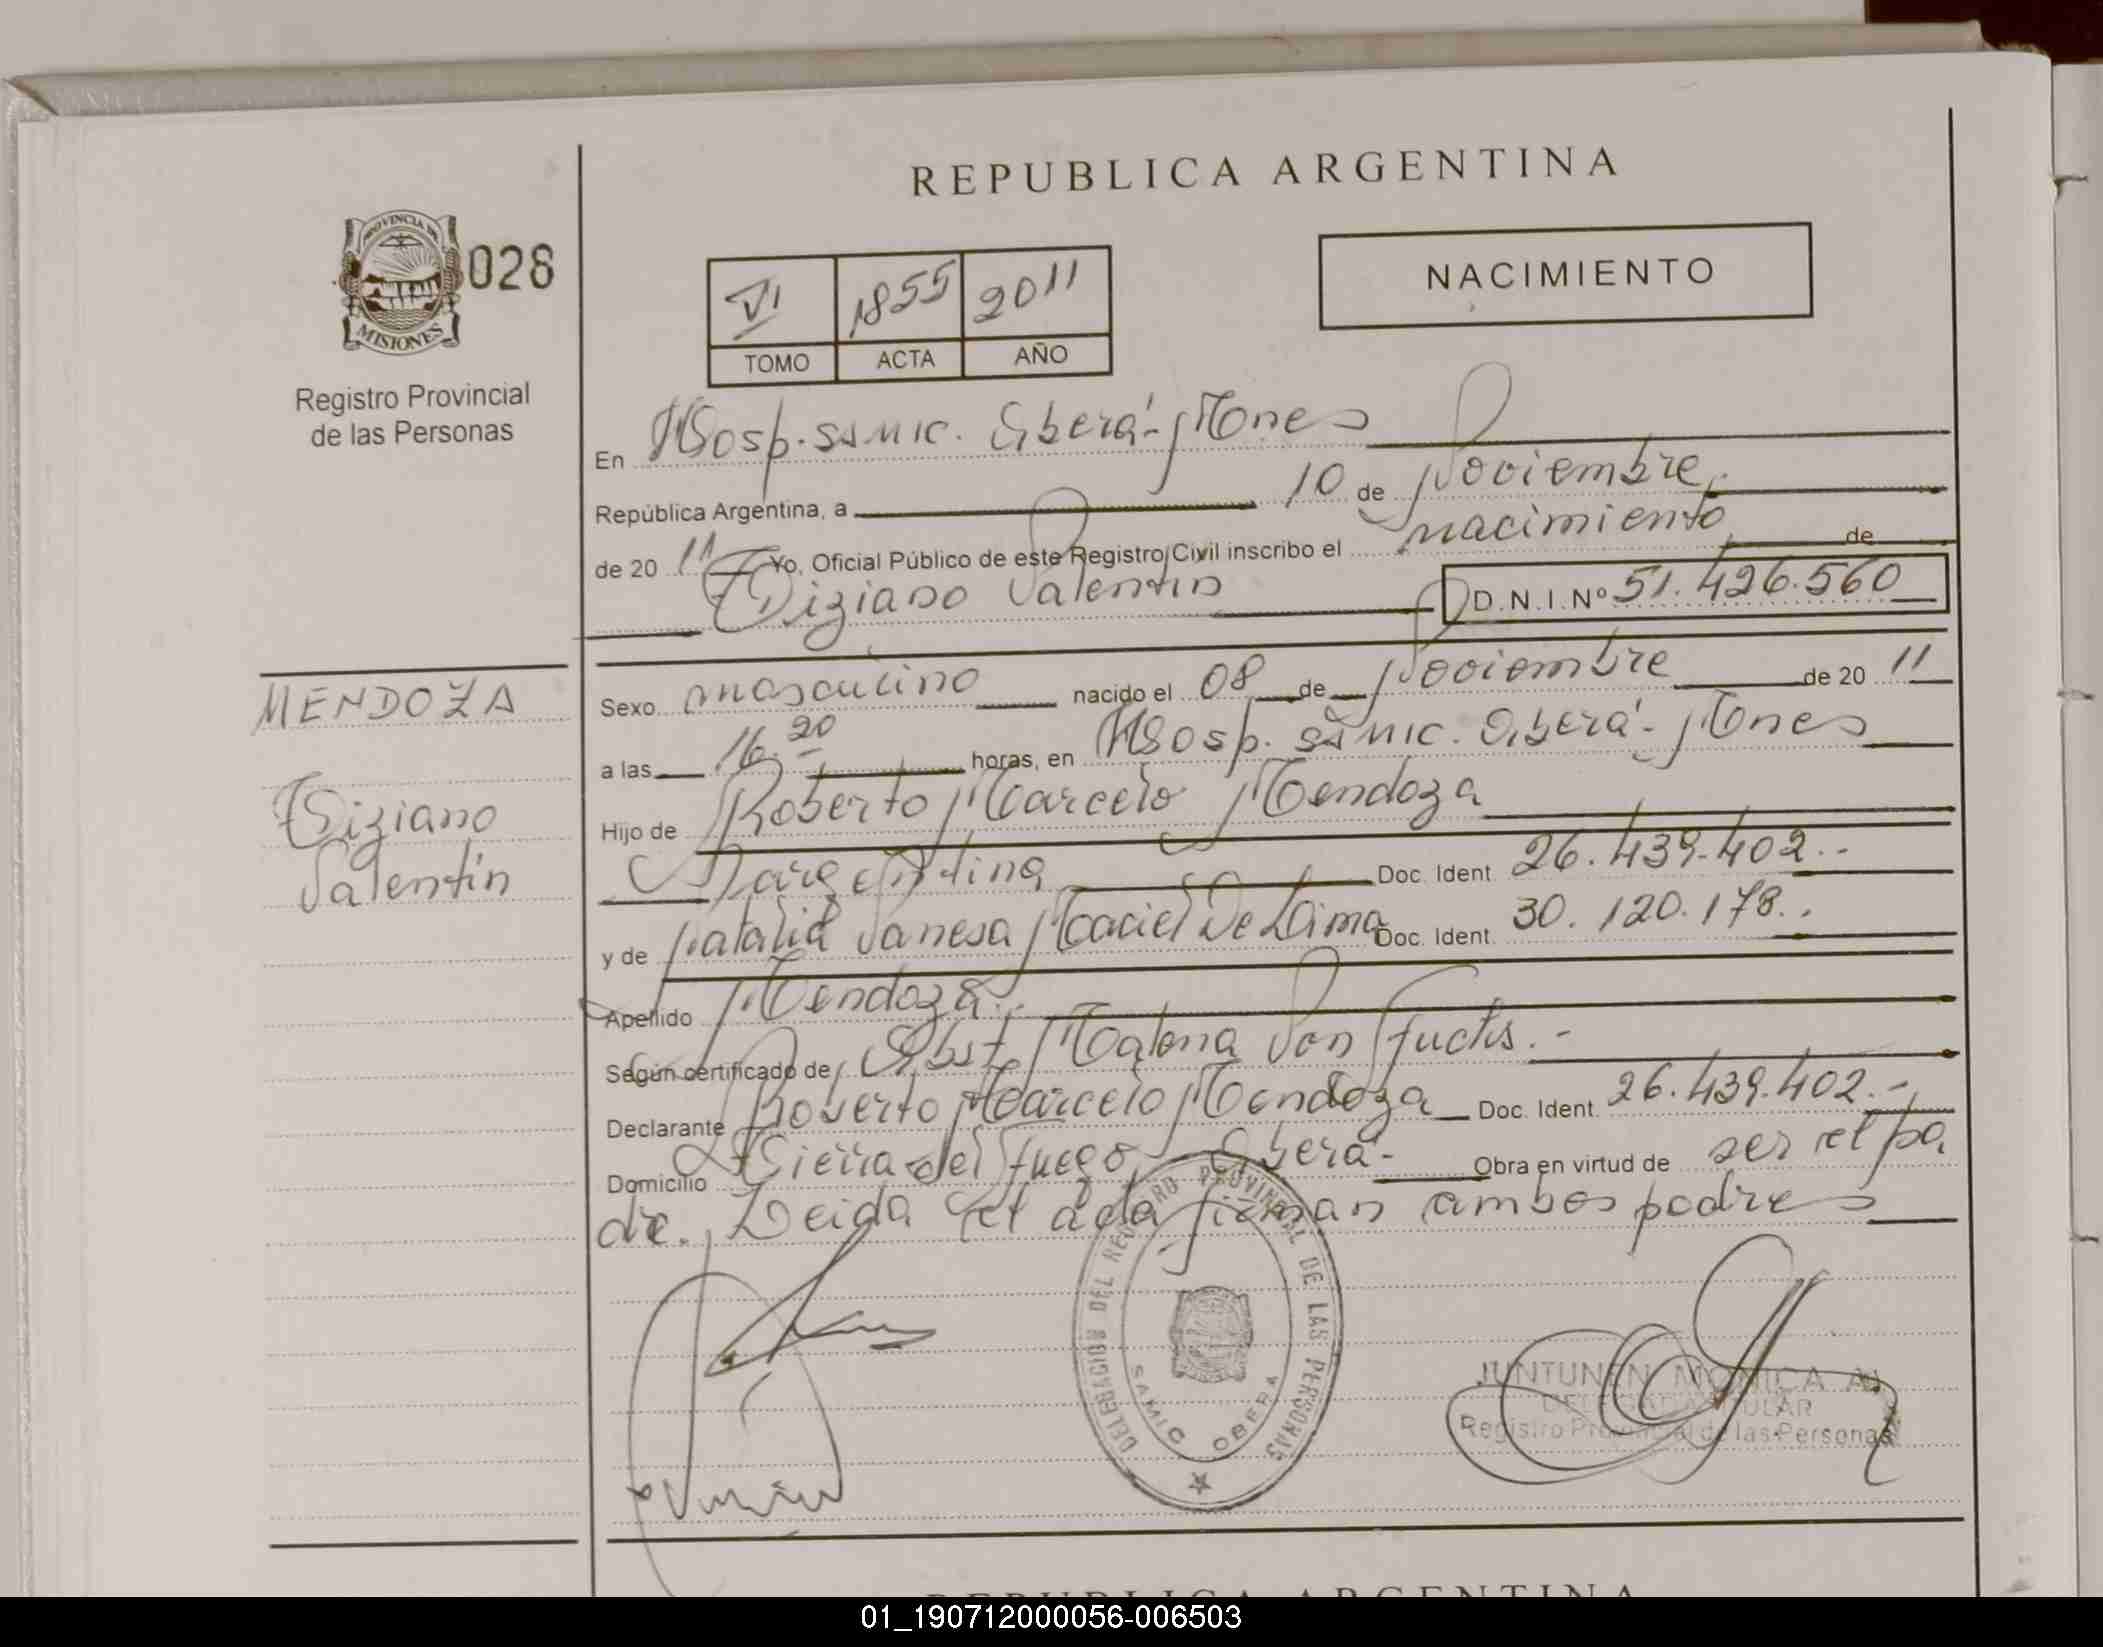 REPUBLICA ARGENTINA
PROVINCIA DE
MISIONES
028
Registro Provincial
de las Personas
VI 1855 2011
TOMO ACTA AÑO
NACIMIENTO
En Hosp. SAMIC. Oberá - Mnes
República Argentina, a 10 de Noviembre
de 20 11 Yo, Oficial Público de este Registro Civil inscribo el nacimiento de
Tiziano Valentin D.N.I. Nº 51.426.560
MENDOZA
Tiziano
Valentín
Sexo masculino nacido el 08 de Noviembre de 20 11
a las 16.20 horas, en Hosp. SAMIC. Oberá - Mnes
Hijo de Roberto Marcelo Mendoza
Argentina Doc. Ident. 26.439.402.-
y de Natalia Vanesa Maciel De Lima Doc. Ident. 30.120.178.-
Apellido Mendoza.-
Según certificado de Obst. Malena Von Fuchs.-
Declarante Roberto Marcelo Mendoza Doc. Ident. 26.439.402.-
Domicilio Tierra del Fuego, Oberá - Obra en virtud de ser el pa
dre. Leida el acta firman ambos padres
DELEGACION DEL REGISTRO PROVINCIAL DE LAS PERSONAS
SAMIC OBERA
JUNTUNEN MONICA A.
DELEGADA TITULAR
Registro Provincial de las Personas
REPUBLICA ARGENTINA
01_190712000056-006503